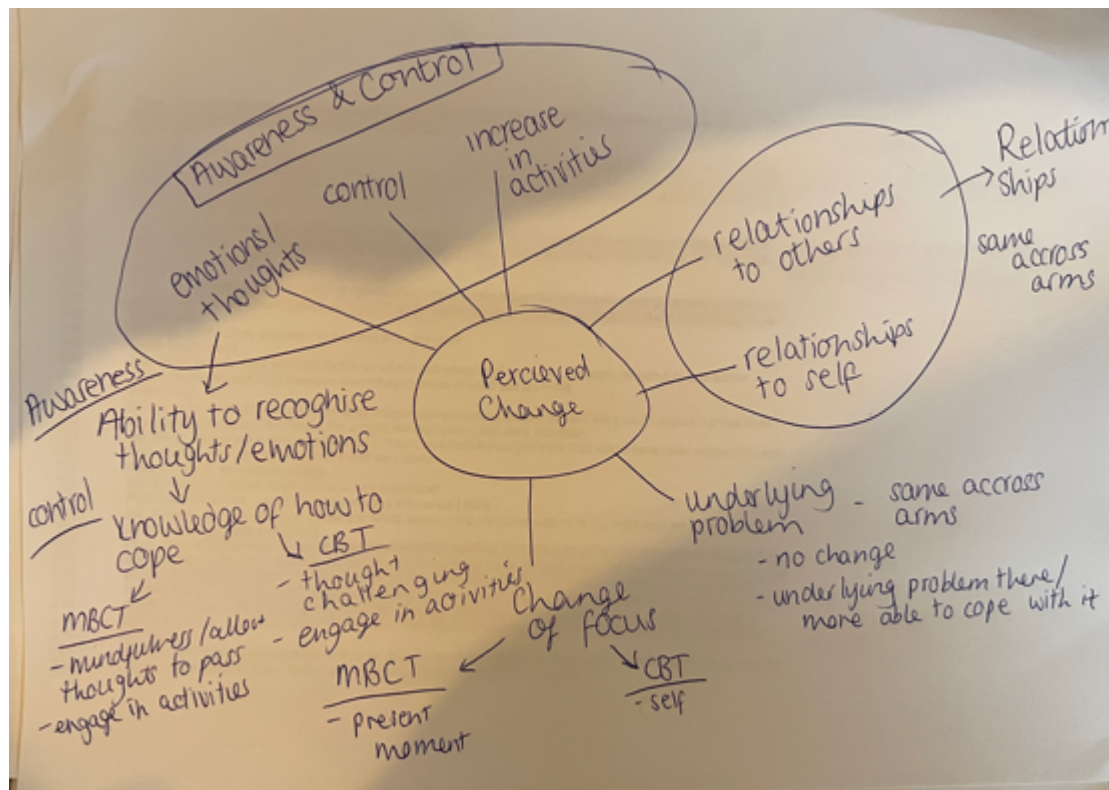 Awareness & Control
emotions/
thoughts
control
increase
in
activities
relationships
to others
relationships
to self
Relation
ships
same
accross
arms
Percieved
Change
Awareness
Ability to recoghise
thoughts/emotions
control
knowledge of how to
cope
MBCT
- mindfulness/allow
thoughts to pass
- engage in activities
CBT
- thought
challenging
- engage in activities
Change
of focus
MBCT
- present
moment
CBT
- self
underlying
problem
- same accross
arms
- no change
- underlying problem there/
more able to cope with it